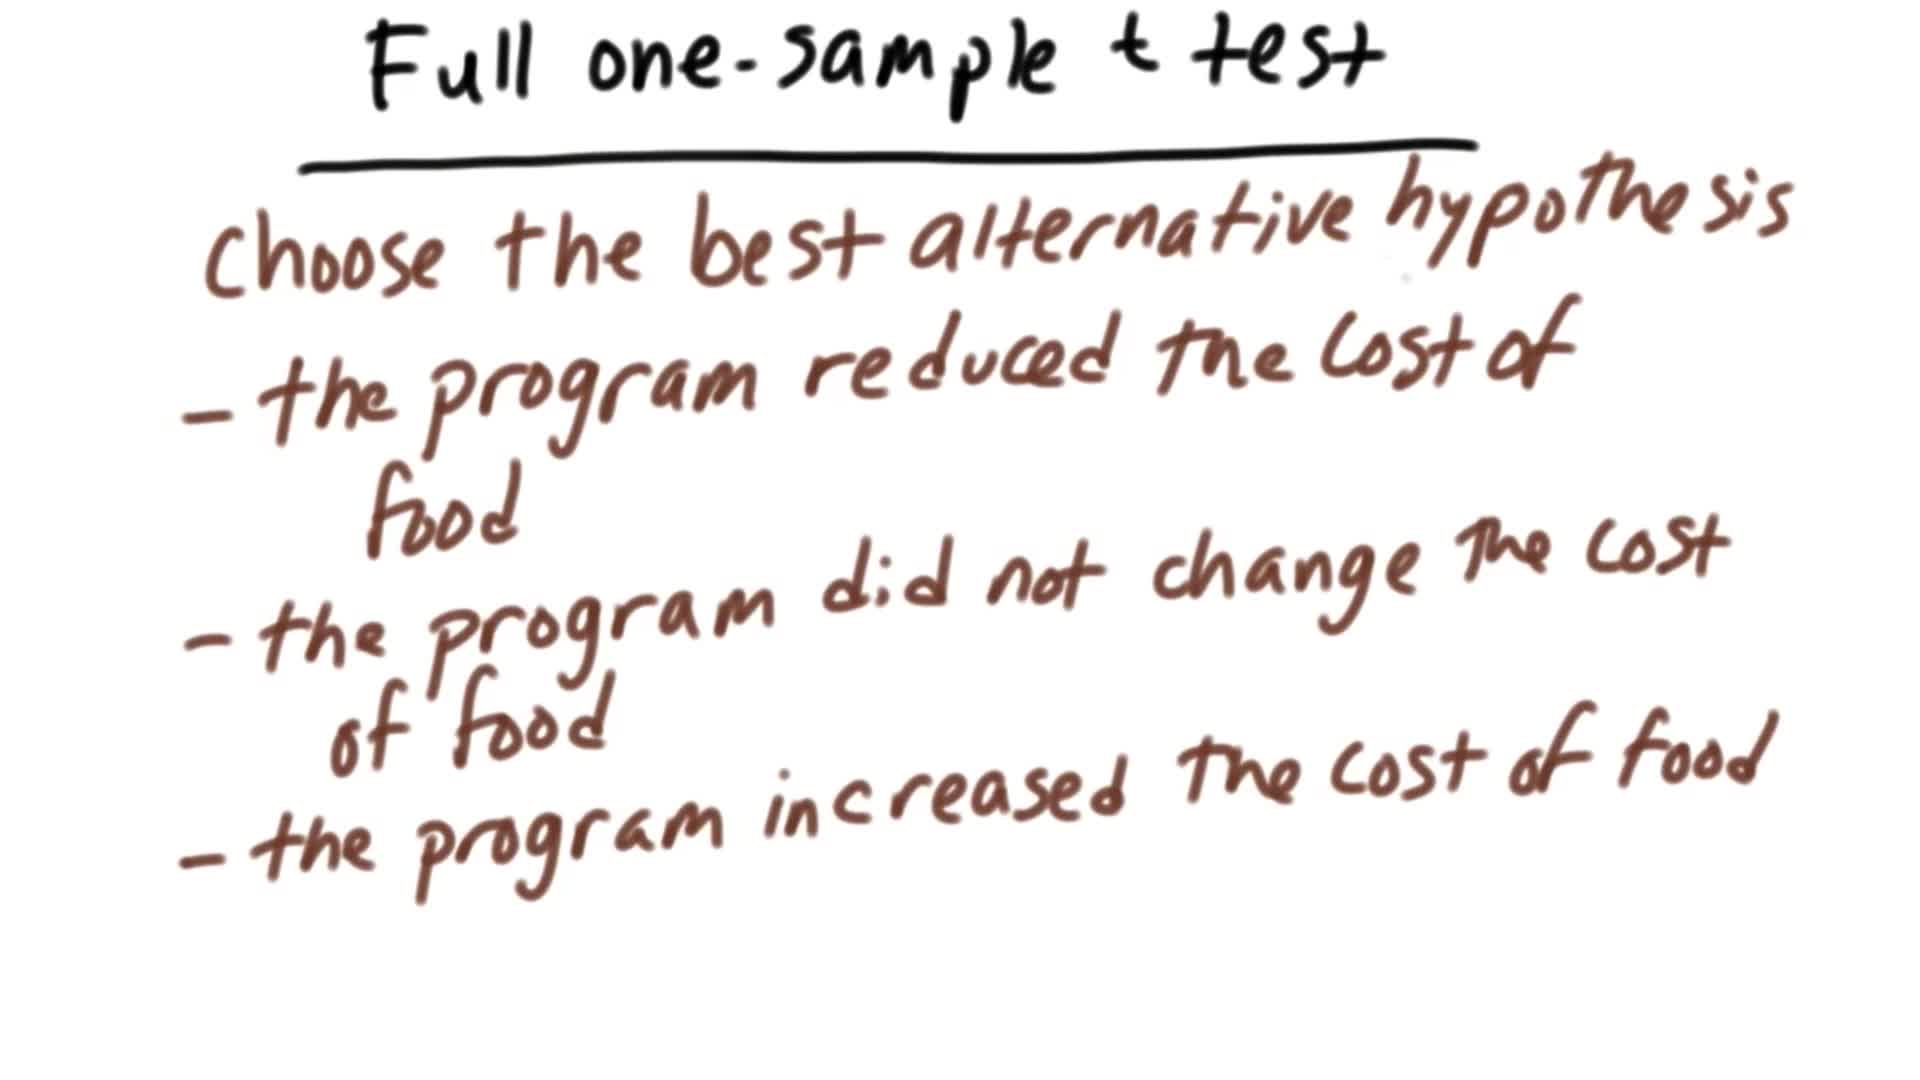 Full one-sample t test
Choose the best alternative hypothesis
- the program reduced the cost of
food
- the program did not change the cost
of food
- the program increased the cost of food